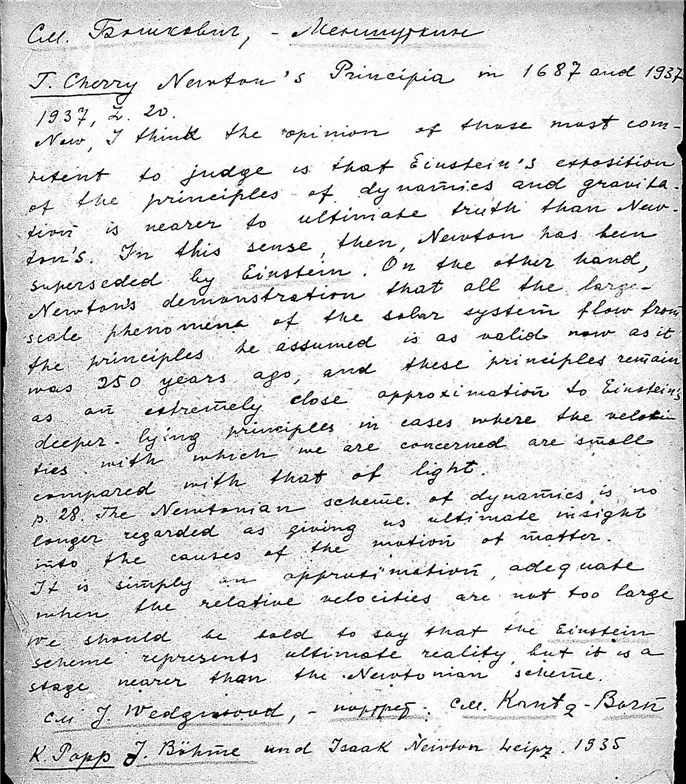 См. Бошкович, - Меншуткин
T. Cherry Newton's Principia in 1687 and 1937
1937, L. 20.
Now, I think the opinion of those most com-
petent to judge is that Einstein's exposition
of the principles of dynamics and gravita-
tion is nearer to ultimate truth than New-
ton's. In this sense, then, Newton has been
superseded by Einstein. On the other hand,
Newton's demonstration that all the large-
scale phenomena of the solar system flow from
the principles he assumed is as valid now as it
was 250 years ago, and these principles remain
as an extremely close approximation to Einstein's
deeper-lying principles in cases where the veloci
ties with which we are concerned are small
compared with that of light.
p. 28. The Newtonian scheme of dynamics is no
longer regarded as giving us ultimate insight
into the causes of the motion of matter.
It is simply an approximation, adequate
when the relative velocities are not too large
We should be bold to say that the Einstein
scheme represents ultimate reality, but it is a
stage nearer than the Newtonian scheme.
См J. Wedgwood, - портрет. См. Krntz-Born
K. Popp J. Böhme und Isaak Newton Leipz. 1935